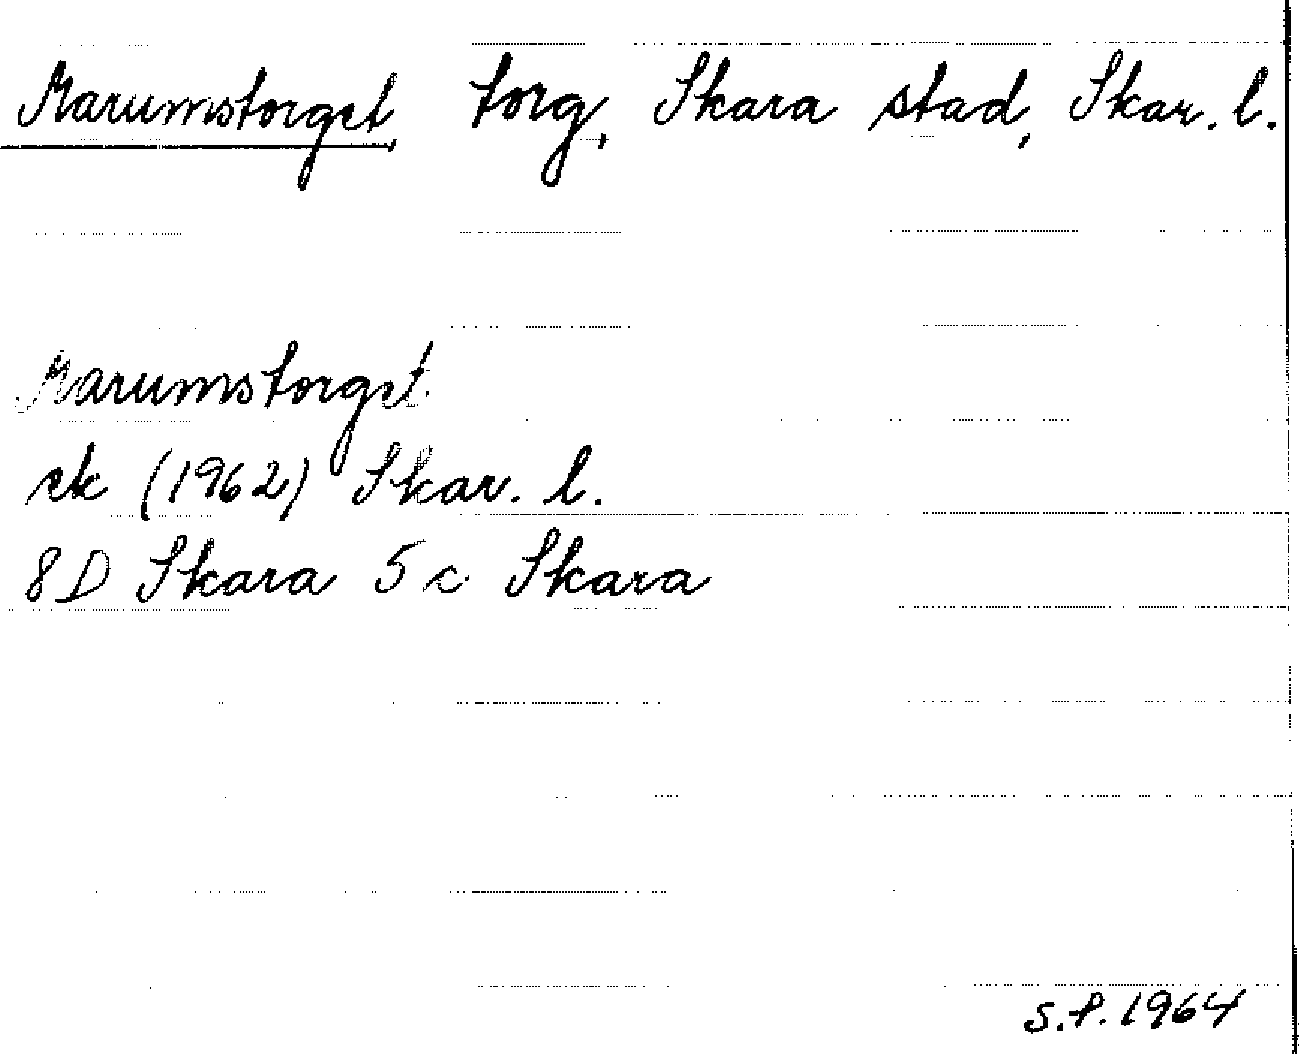 Marumstorget, torg, Skara stad, Skar. l.
Marumstorget
ek (1962) Skar. l.
8D Skara 5c Skara
S.P. 1964